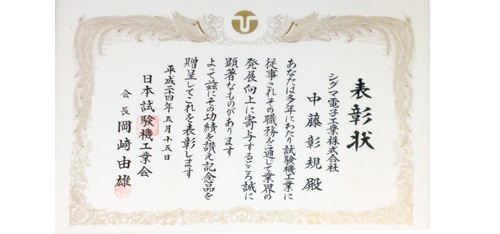 表彰状
シグマ電子工業株式会社
中藤彰規殿
あなたは多年にわたり試験機工業に
従事されその職務を通じて業界の
発展向上に寄与するところ誠に
顕著なものがあります
よって茲にその功績を讃え記念品を
贈呈してこれを表彰します
平成二十四年五月十五日
日本試験機工業会
会長 岡﨑由雄